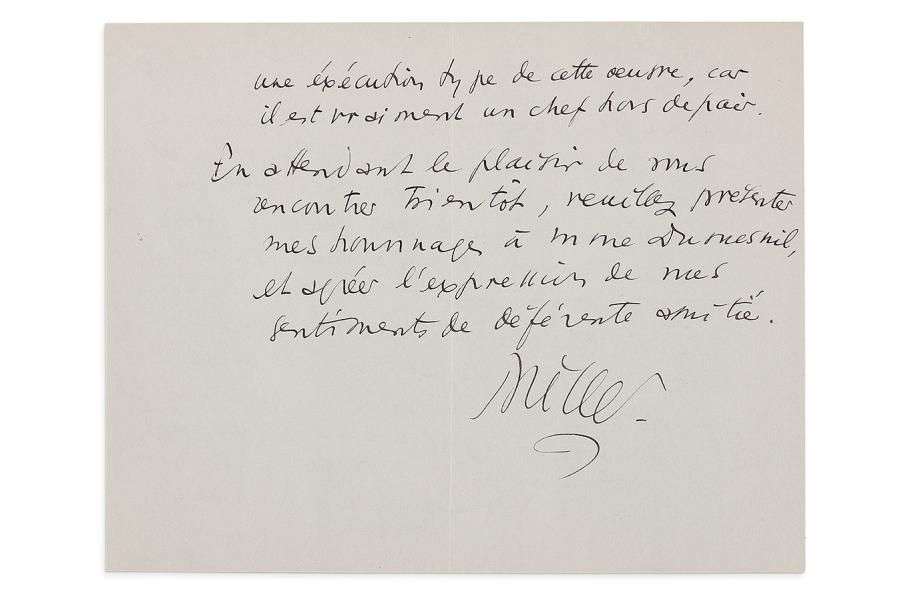 une éxécution type de cette oeuvre, car
il est vraiment un chef hors de pair.
En attendant le plaisir de vous
rencontrer bientôt, veuillez présenter
mes hommages à Mme Dumesnil,
et agréer l'expression de mes
sentiments de déférente amitié.